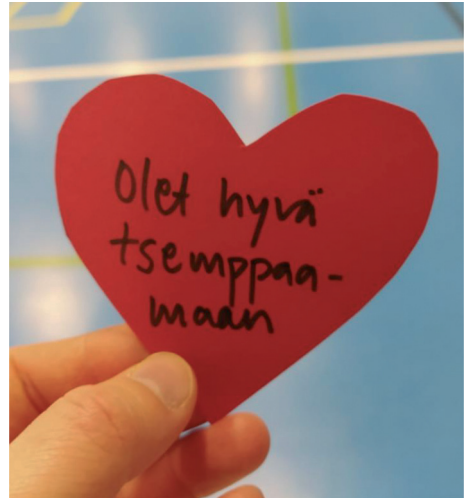 Olet hyvä
tsemppaa-
maan